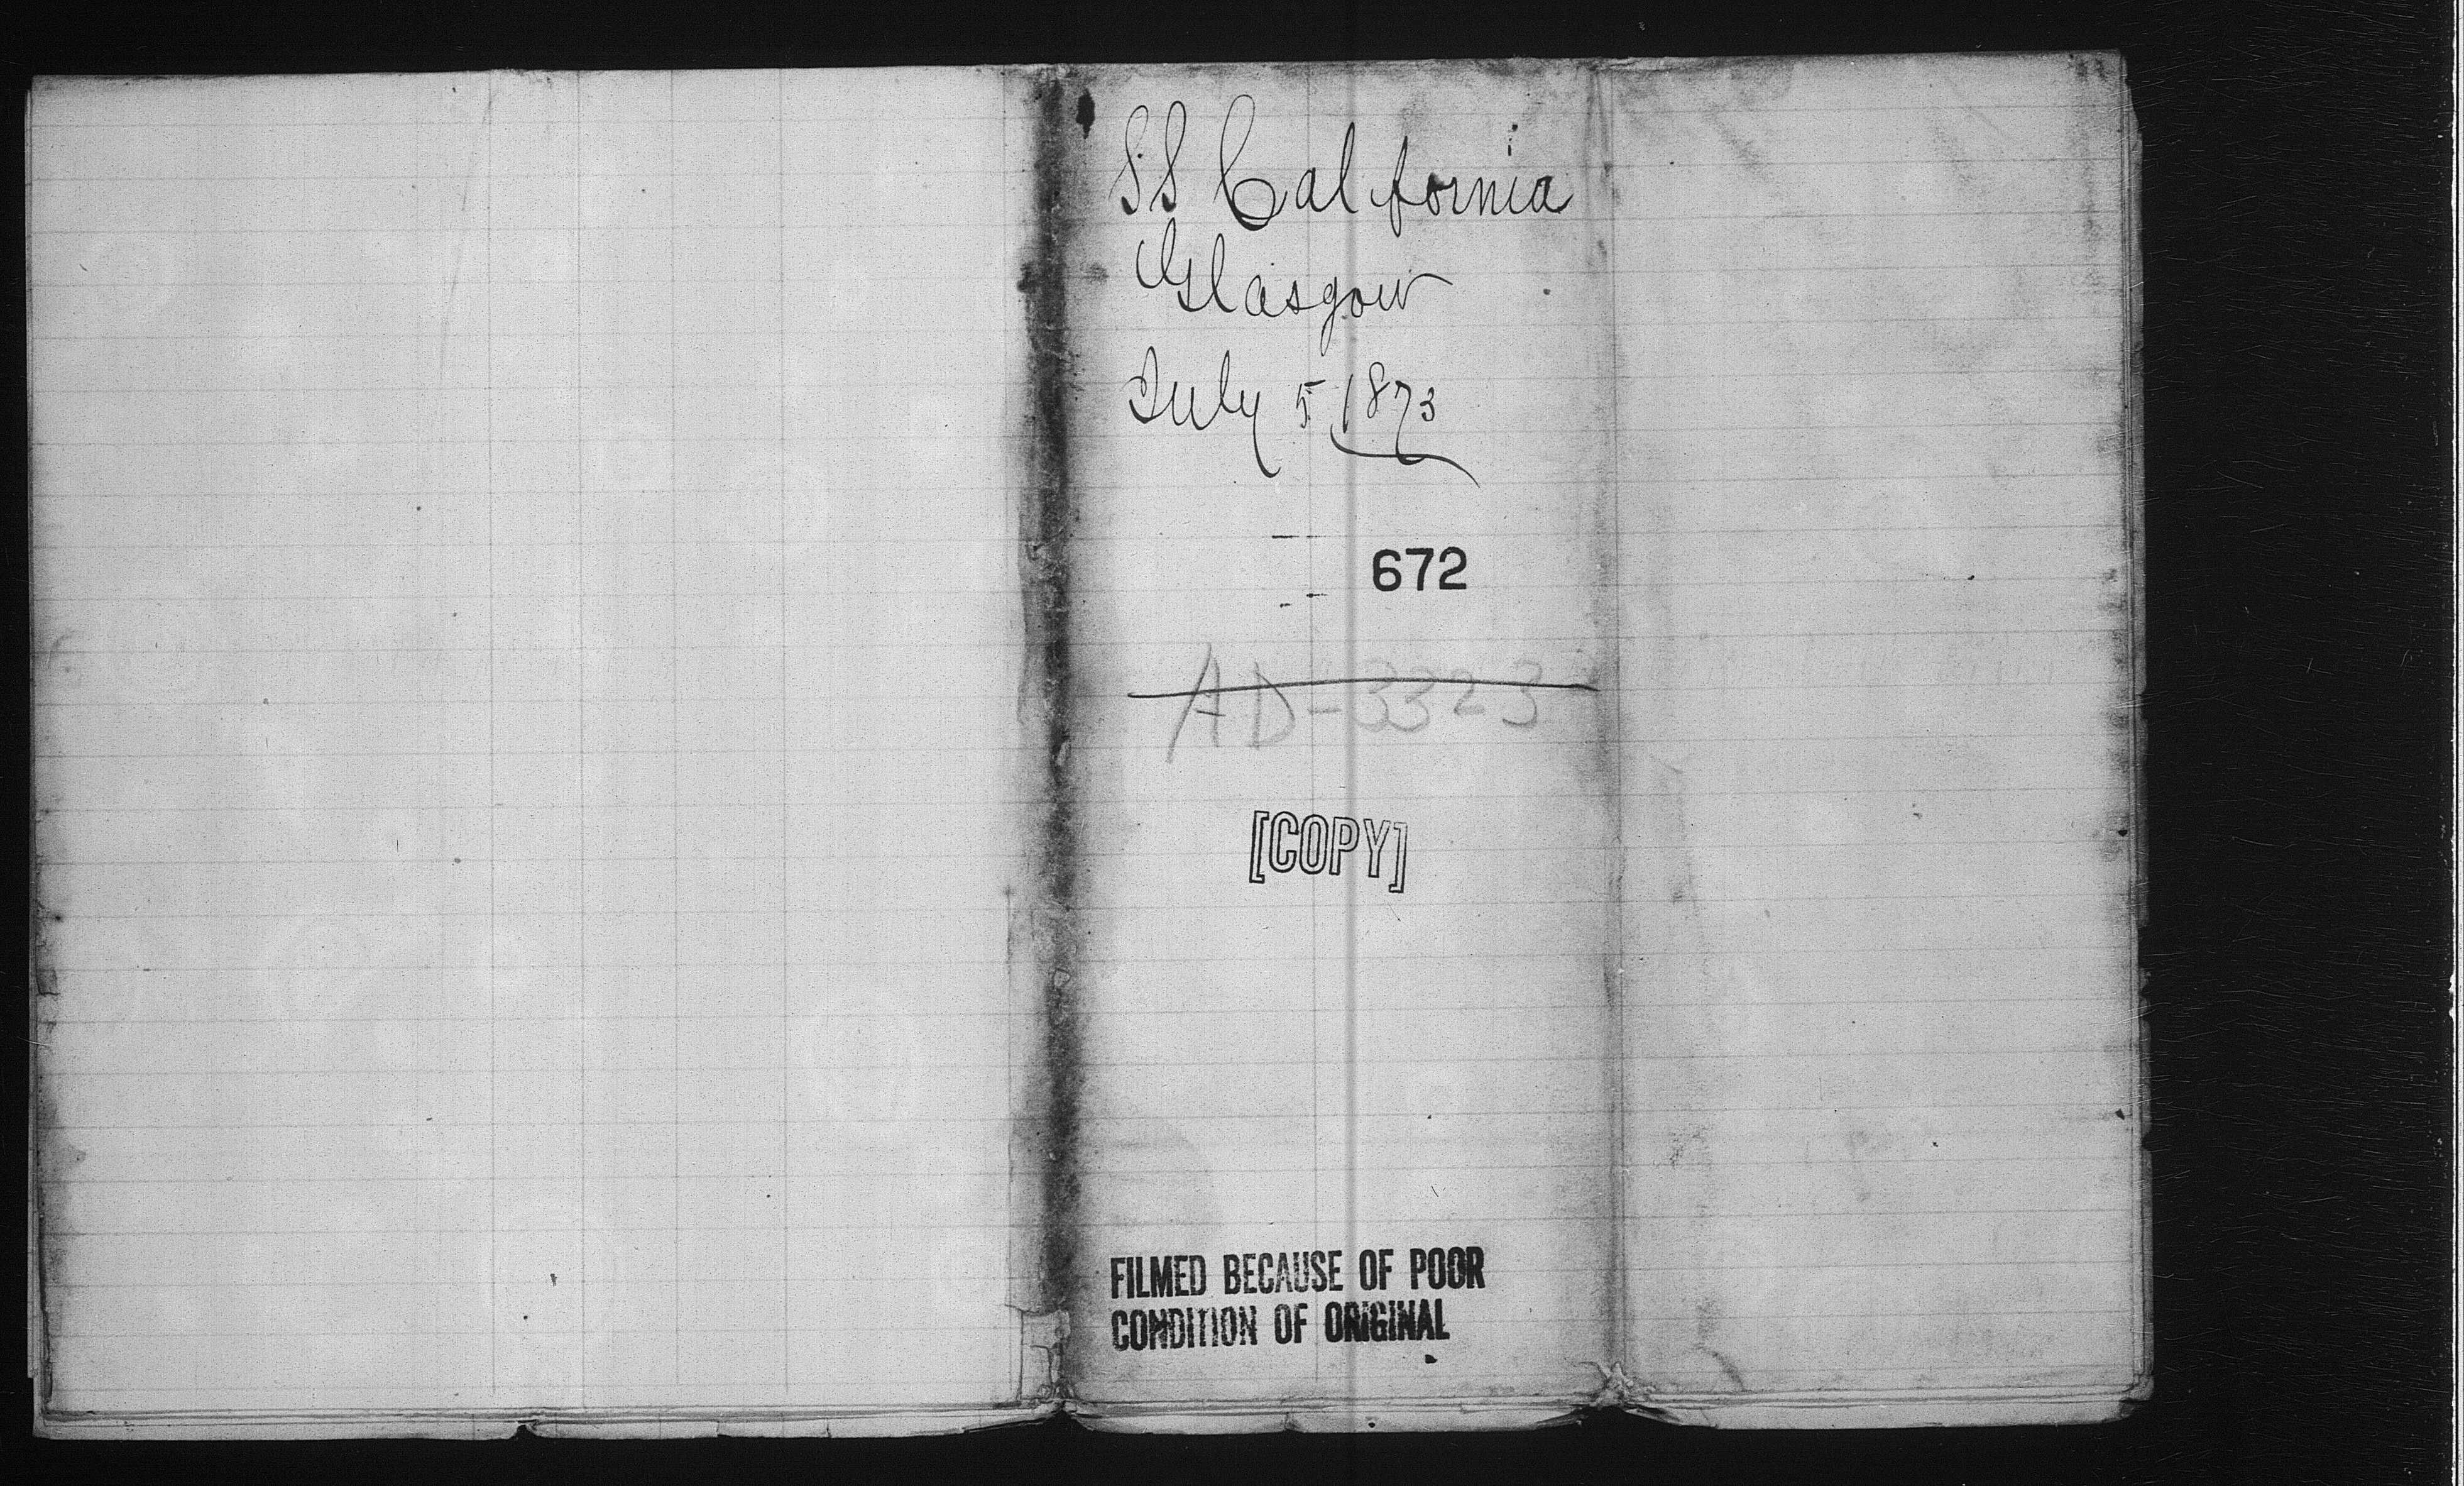 SS California
Glasgow
July 5 1873
672
AD-3323
[COPY]
FILMED BECAUSE OF POOR
CONDITION OF ORIGINAL